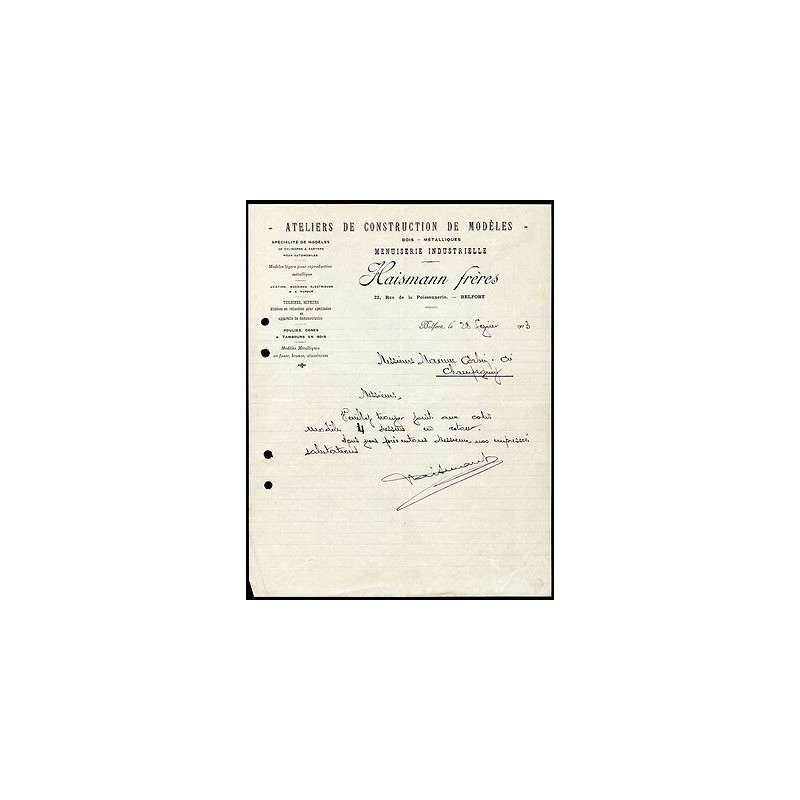 - ATELIERS DE CONSTRUCTION DE MODÈLES -
BOIS - MÉTALLIQUES
MENUISERIE INDUSTRIELLE
Haismann frères
22, Rue de la Poissonnerie. - BELFORT
SPÉCIALITÉ DE MODÈLES
DE CYLINDRES & CARTERS
POUR AUTOMOBILES
Modèles légers pour reproduction
métallique
AVIATION, MACHINES ÉLECTRIQUES
& A VAPEUR
TURBINES, MOTEURS
Modèles en réduction pour spécimens
et appareils de démonstration
POULIES, CONES
& TAMBOURS EN BOIS
Modèles Métalliques
en fonte, bronze, aluminium
Belfort, le 28 Février
Messieurs
Champagney
Messieurs,
Veuillez trouver joint aux colis
modèle 4 dessins en retour.
présentons Messieurs nos empressé
salutations
Haismann